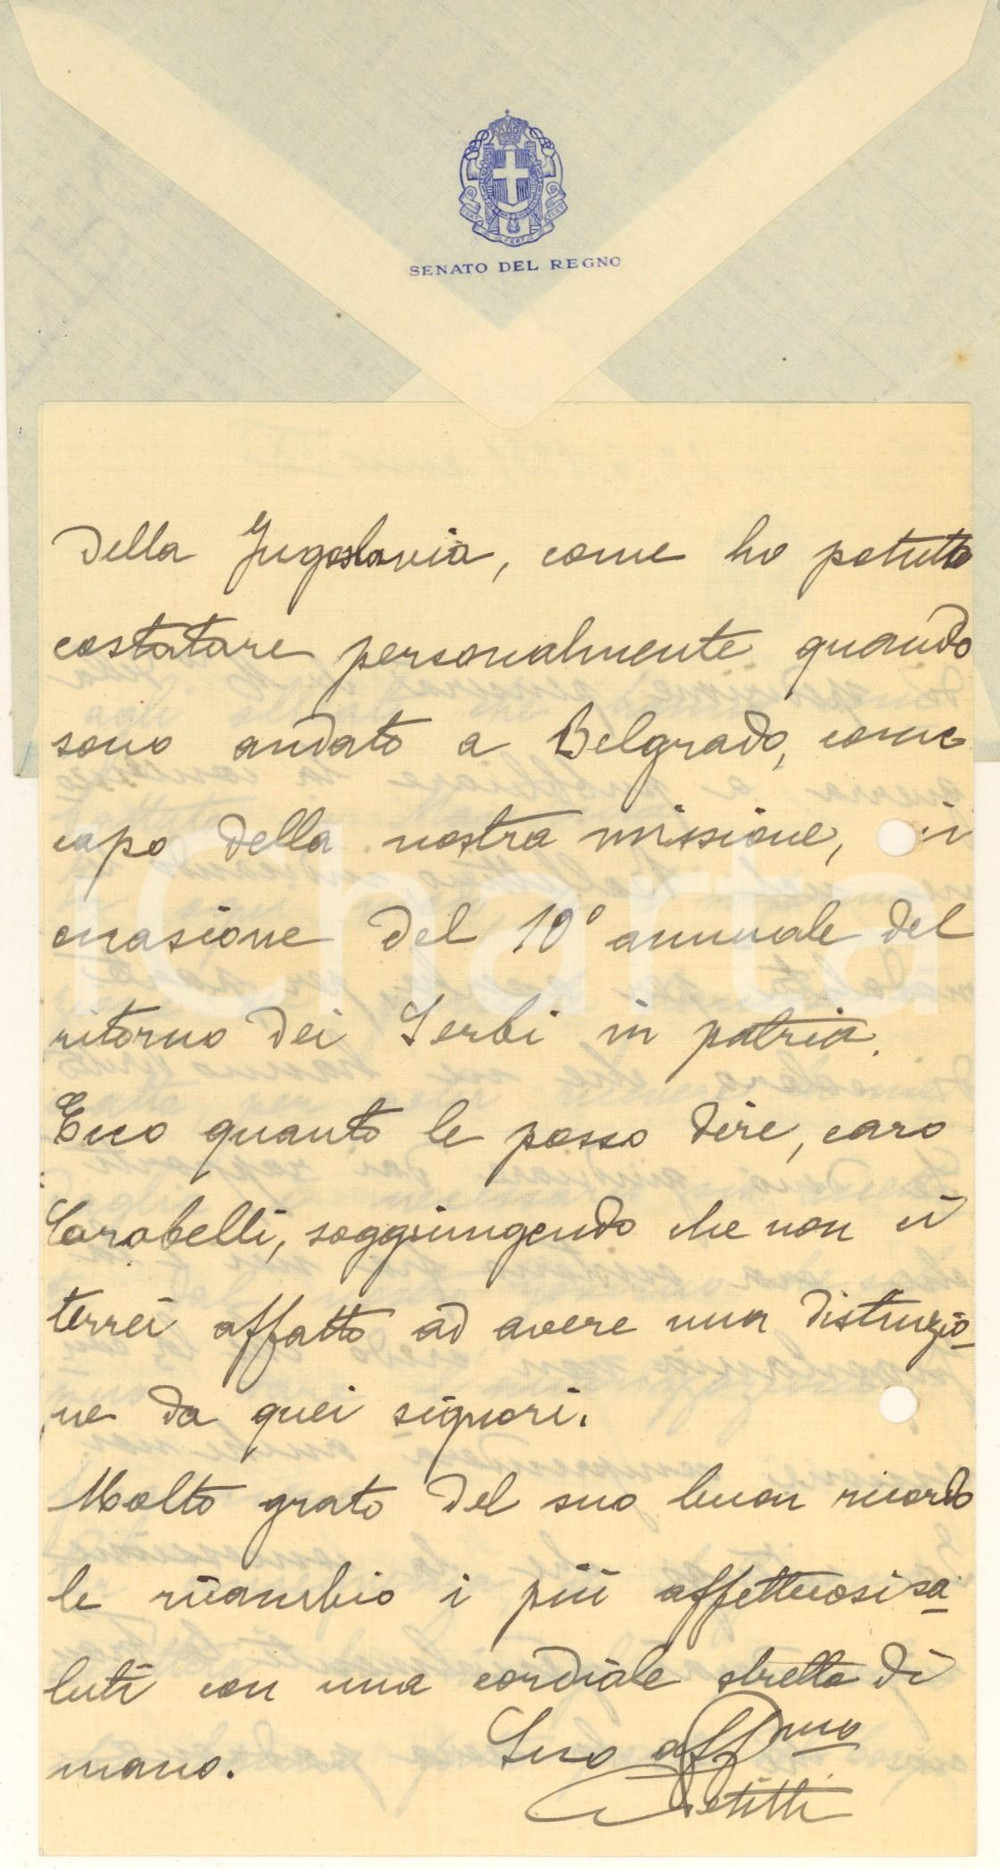 SENATO DEL REGNO
della Jugoslavia, come ho potuto
costatare personalmente quando
sono andato a Belgrado, come
capo della nostra missione, in
occasione del 10° annuale del
ritorno dei Serbi in patria.
Ecco quanto le posso dire, caro
Carabelli, soggiungendo che non ci
terrei affatto ad avere una distinzio-
ne da quei signori.
Molto grato del suo buon ricordo
le ricambio i più affettuosi sa-
luti con una cordiale stretta di
mano. Suo affmo
Petitti
iCharta